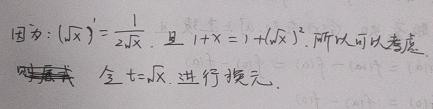 因为：(√x)' = 1/(2√x). 且 1+x = 1+(√x)². 所以可以考虑
令 t=√x. 进行换元.